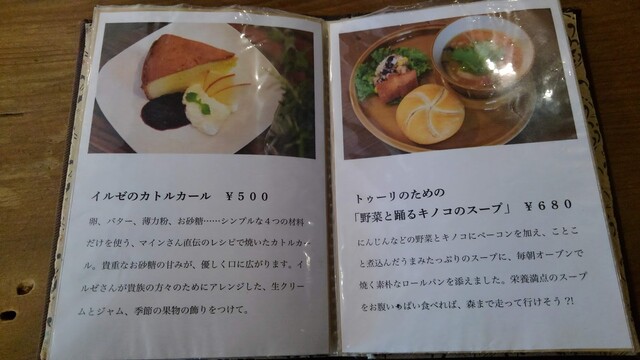 イルゼのカトルカール ￥５００
卵、バター、薄力粉、お砂糖……シンプルな４つの材料
だけを使う、マインさん直伝のレシピで焼いたカトルカー
ル。貴重なお砂糖の甘みが、優しく口に広がります。イ
ルゼさんが貴族の方々のためにアレンジした、生クリー
ムとジャム、季節の果物の飾りをつけて。
トゥーリのための
「野菜と踊るキノコのスープ」 ￥６８０
にんじんなどの野菜とキノコにベーコンを加え、ことこ
と煮込んだうまみたっぷりのスープに、毎朝オーブンで
焼く素朴なロールパンを添えました。栄養満点のスープ
をお腹いっぱい食べれば、森まで走って行けそう?!